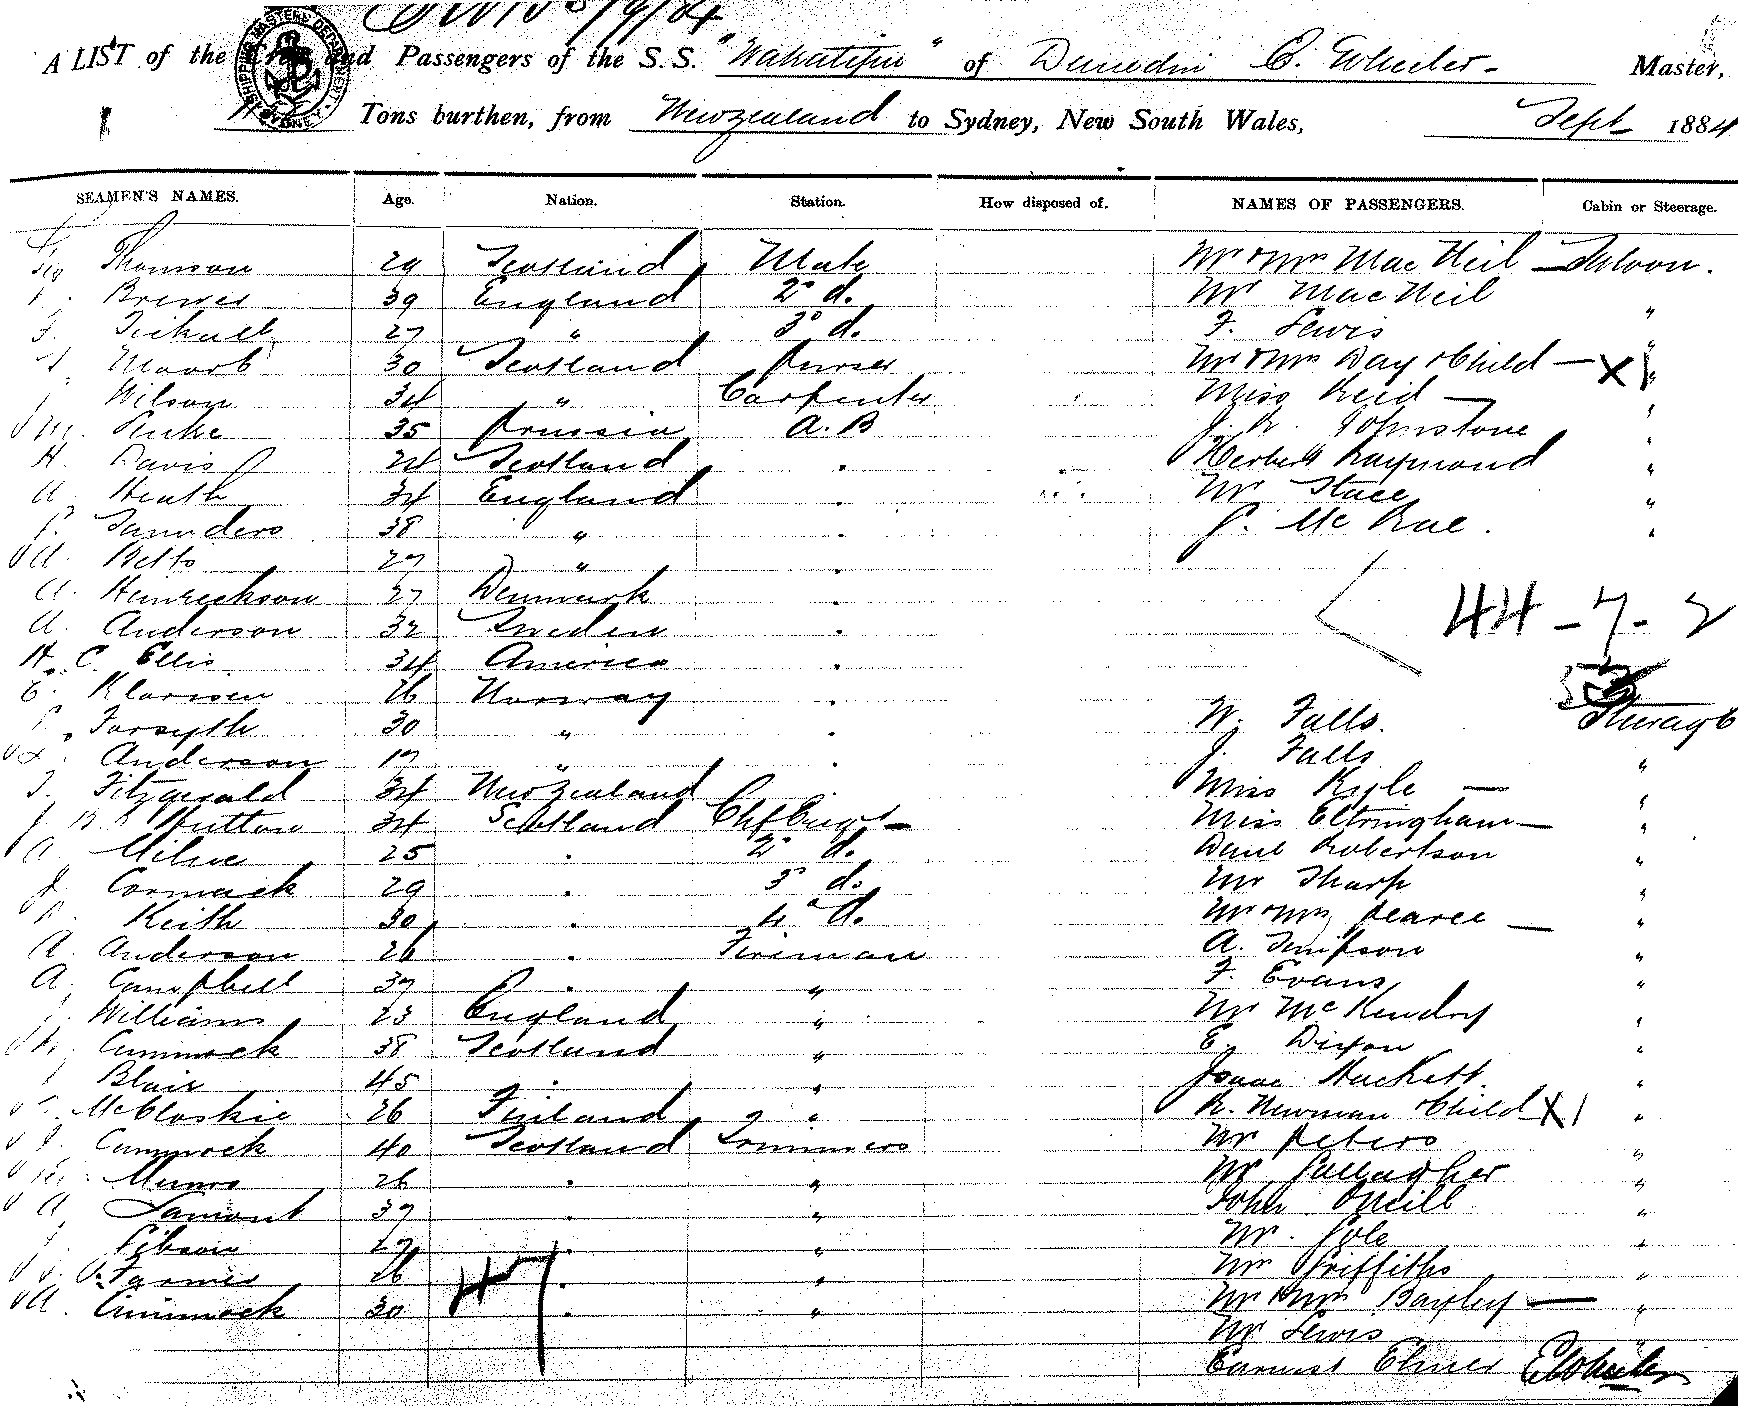 A LIST of the Crew and Passengers of the S.S. "Wakatipu" of Dunedin C. Wheeler Master,
Tons burthen, from Newzealand to Sydney, New South Wales, Sept 1884
SEAMEN'S NAMES. Age. Nation. Station. How disposed of. NAMES OF PASSENGERS. Cabin or Steerage.
Thomson 29 Scotland Mate Mr & Mrs MacNeil — Saloon.
Brewer 39 England 2° d. Mr MacNeil "
27 " 3° d. F. Lewis "
30 Scotland Purser Mr & Mrs Day & Child — X 1 "
Wilson 34 " Carpenter Miss Reid — "
35 Prussia A.B J. R. Johnstone "
H. Davis 24 Scotland . Herbert Raymond "
A. Heath 34 England . Mr Stace "
Saunders 38 " . McRae. "
A. Betts 27 " .
A. Heinrickson 27 Denmark .
A. Anderson 32 Sweden . 44 - 7 - 2
H. C. Ellis 34 America .
26 Norway .
Forsyth 30 " . W. Falls. Steerage
Anderson 17 " . J. Falls "
Fitzgerald 34 Newzealand Miss Kyle — "
Hutton 34 Scotland Miss Eltringham — "
A. Milne 25 . 2° d. Robertson "
J. Cormack 29 . 3° d. Mr Tharp "
Keith 30 . 4° d. Mr & Mrs Pearce — "
A. Anderson 26 . Fireman A. Simpson "
A. Campbell 37 . " F. Evans "
Williams 23 England " Mr McKendry "
Cummock 38 Scotland " E. Dixon "
Blair 45 . " Isaac Hackett. "
McCloskie 26 Finland " R. Newman & Child X 1 "
Cammock 40 Scotland Trimmers Mr Peters "
Munro 26 . " Mr Gallagher "
A. Lamont 37 . " John O'Neill "
Gibson 27 . " Mr. Cole "
Farmer 26 . " Mr Griffiths "
A. Cummock 30 . " Mr & Mrs Bayley — "
Mr Lewis
Earnest Elmer